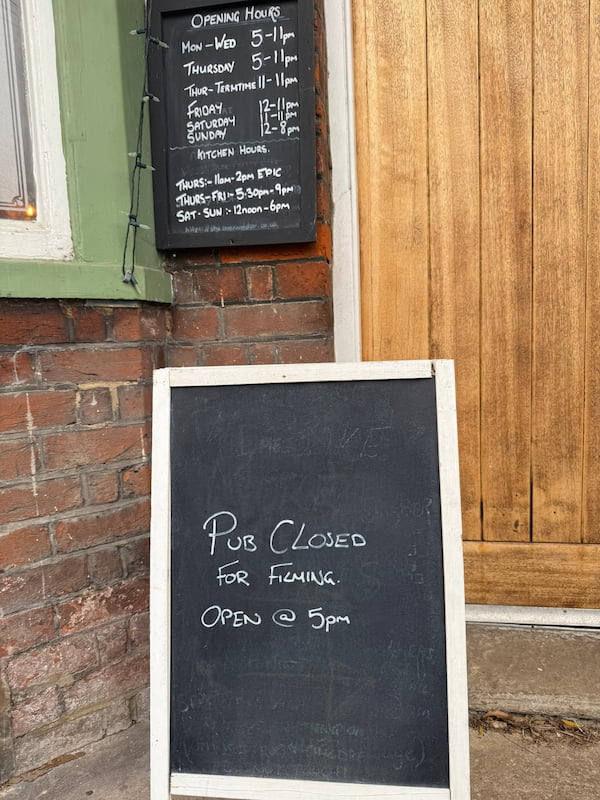 OPENING HOURS
MON-WED 5-11pm
THURSDAY 5-11pm
THUR-TERMTIME 11-11pm
FRIDAY 12-11pm
SATURDAY 11-11pm
SUNDAY 12-8pm
KITCHEN HOURS.
THURS:- 11am-2pm EPIC
THURS-FRI:- 5:30pm-9pm
SAT-SUN:- 12noon-6pm
PUB CLOSED
FOR FILMING.
OPEN @ 5pm